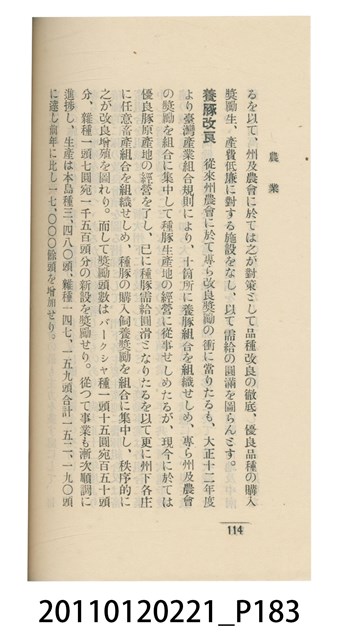 農業
るを以て、州及農會に於ては之が對策として品種改良の徹底、優良品種の購入
獎勵生、產費低廉に對する施設をなし、以て需給の圓滿を圖らんとす。
養豚改良　從來州農會に於て專ら改良獎勵の衝に當りたるも、大正十二年度
より臺灣產業組合規則により、十箇所に養豚組合を組織せしめ、專ら州及農會
の獎勵を組合に集中して種豚生產地の經營に從事せしめたるが、現今に於ては
優良豚原產地の經營を了し、已に種豚需給圓滑となりたるを以て更に州下各庄
に任意畜產組合を組織せしめ、種豚の購入飼養獎勵を組合に集中し、秩序的に
之が改良增殖を圖れり。而して獎勵頭數はバークシャ種一頭十五圓宛百五十頭
分、雜種一頭七圓宛一千五百頭分の新設を獎勵せり。從つて事業も漸次順調に
進捗し、生產は本島種三、四八〇頭、雜種一四七、一五九頭合計一五二、一九〇頭
に達し前年に比し一七、〇〇〇餘頭を增加せり。
114
20110120221_P183